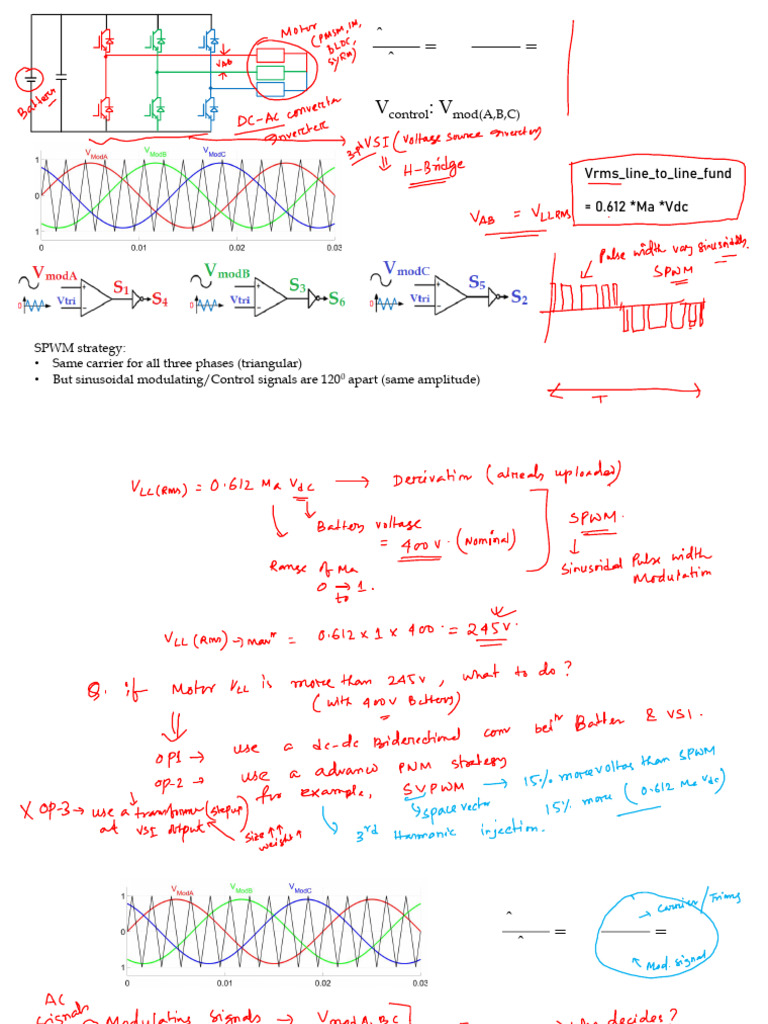 Motor
(PMSM, IM,
BLDC,
SyRM)
VAB
Battery
DC-AC converter
Inverter
^
=
^
=
Vcontrol: Vmod(A,B,C)
3-ph VSI (Voltage source inverter)
⇓
H-Bridge
Vrms_line_to_line_fund
= 0.612 *Ma *Vdc
VAB = VLLRMS
VModA VModB VModC
1
0
1
0 0.01 0.02 0.03
Pulse width vary sinusoidally
SPWM
VmodA
Vtri
+
-
S1
S4
VmodB
Vtri
+
-
S3
S6
VmodC
Vtri
+
-
S5
S2
0
0
0
T
SPWM strategy:
• Same carrier for all three phases (triangular)
• But sinusoidal modulating/Control signals are 120⁰ apart (same amplitude)
VLL(RMS) = 0.612 Ma Vdc → Derivation (already uploaded)
Battery voltage
= 400V. (Nominal)
Range of Ma
0 → 1.
to
SPWM.
↓
Sinusoidal Pulse width
Modulation
VLL(RMS) → max^m = 0.612 x 1 x 400 = 245V.
Q. if Motor VLL is more than 245V, what to do?
(with 400V Battery)
OP1 → use a dc-dc Bidirectional conv bet^n Batter & VSI.
OP-2 → use a advance PWM strategy
for example, SVPWM → 15% more voltas than SPWM
space vector
15% more (0.612 Ma Vdc)
3rd Harmonic injection.
X OP-3 → use a transformer (stepup)
at VSI output
Size ↑↑
weight ↑
VModA VModB VModC
1
0
1
0 0.01 0.02 0.03
^
=
^
→ Carrier/Triang
=
Mod. signal
AC
signals
Modulating signals → Vmod A, B, C
decides?